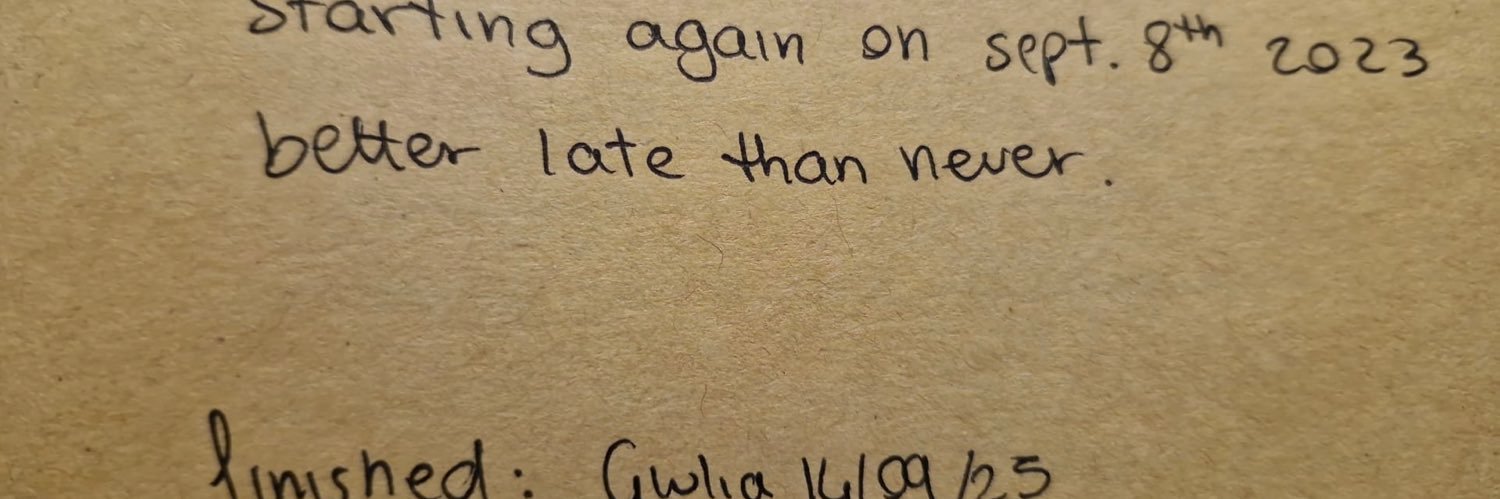 starting again on sept. 8th 2023
better late than never.
finished: Giulia 14/09/25